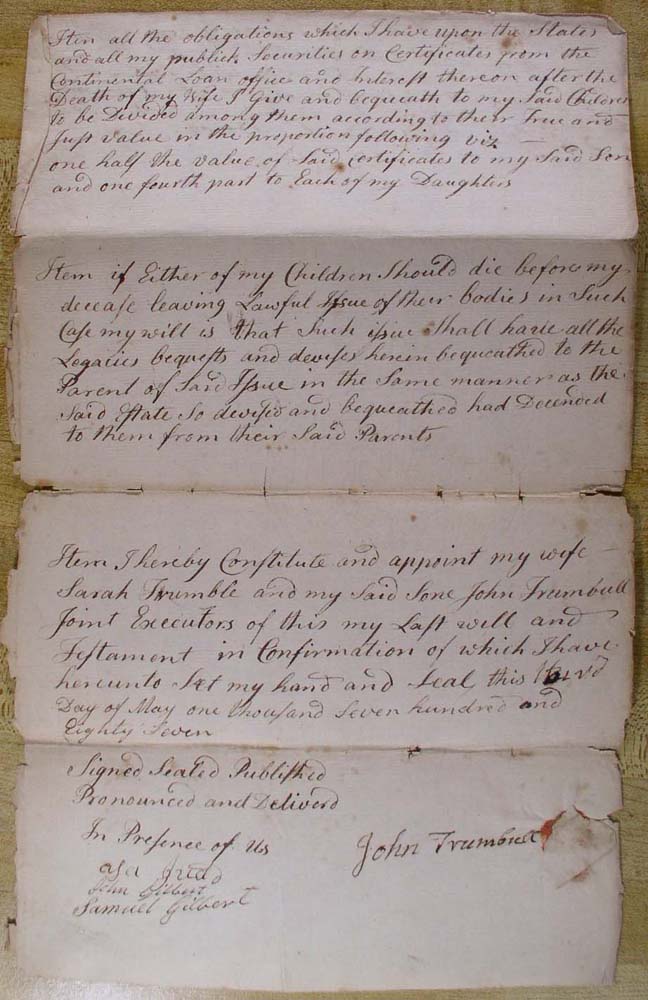 Item all the obligations which I have upon the States
and all my publick Securities on Certificates from the
Continental Loan office and Interest thereon after the
Death of my Wife I Give and bequeath to my Said Children
to be Divided among them according to their True and
Just value in the proportion following viz
one half the value of Said certificates to my Said Son
and one fourth part to Each of my Daughters
Item if Either of my Children Should die before my
decease leaving Lawful Issue of their bodies in Such
Case my will is that Such issue Shall have all the
Legacies bequests and devises herein bequeathed to the
Parent of Said Issue in the Same manner as the
Said State So devised and bequeathed had Decended
to them from their Said Parents
Item I hereby Constitute and appoint my wife
Sarah Trumble and my Said Sone John Trumbull
Joint Executors of this my Last will and
Testament in Confirmation of which I have
hereunto Set my hand and Seal this
Day of May one thousand Seven hundred and
Eighty Seven
Signed Sealed Published
Pronounced and Deliverd
In Presence of Us
John Trumbull
asa
John Gilbert
Samuel Gilbert